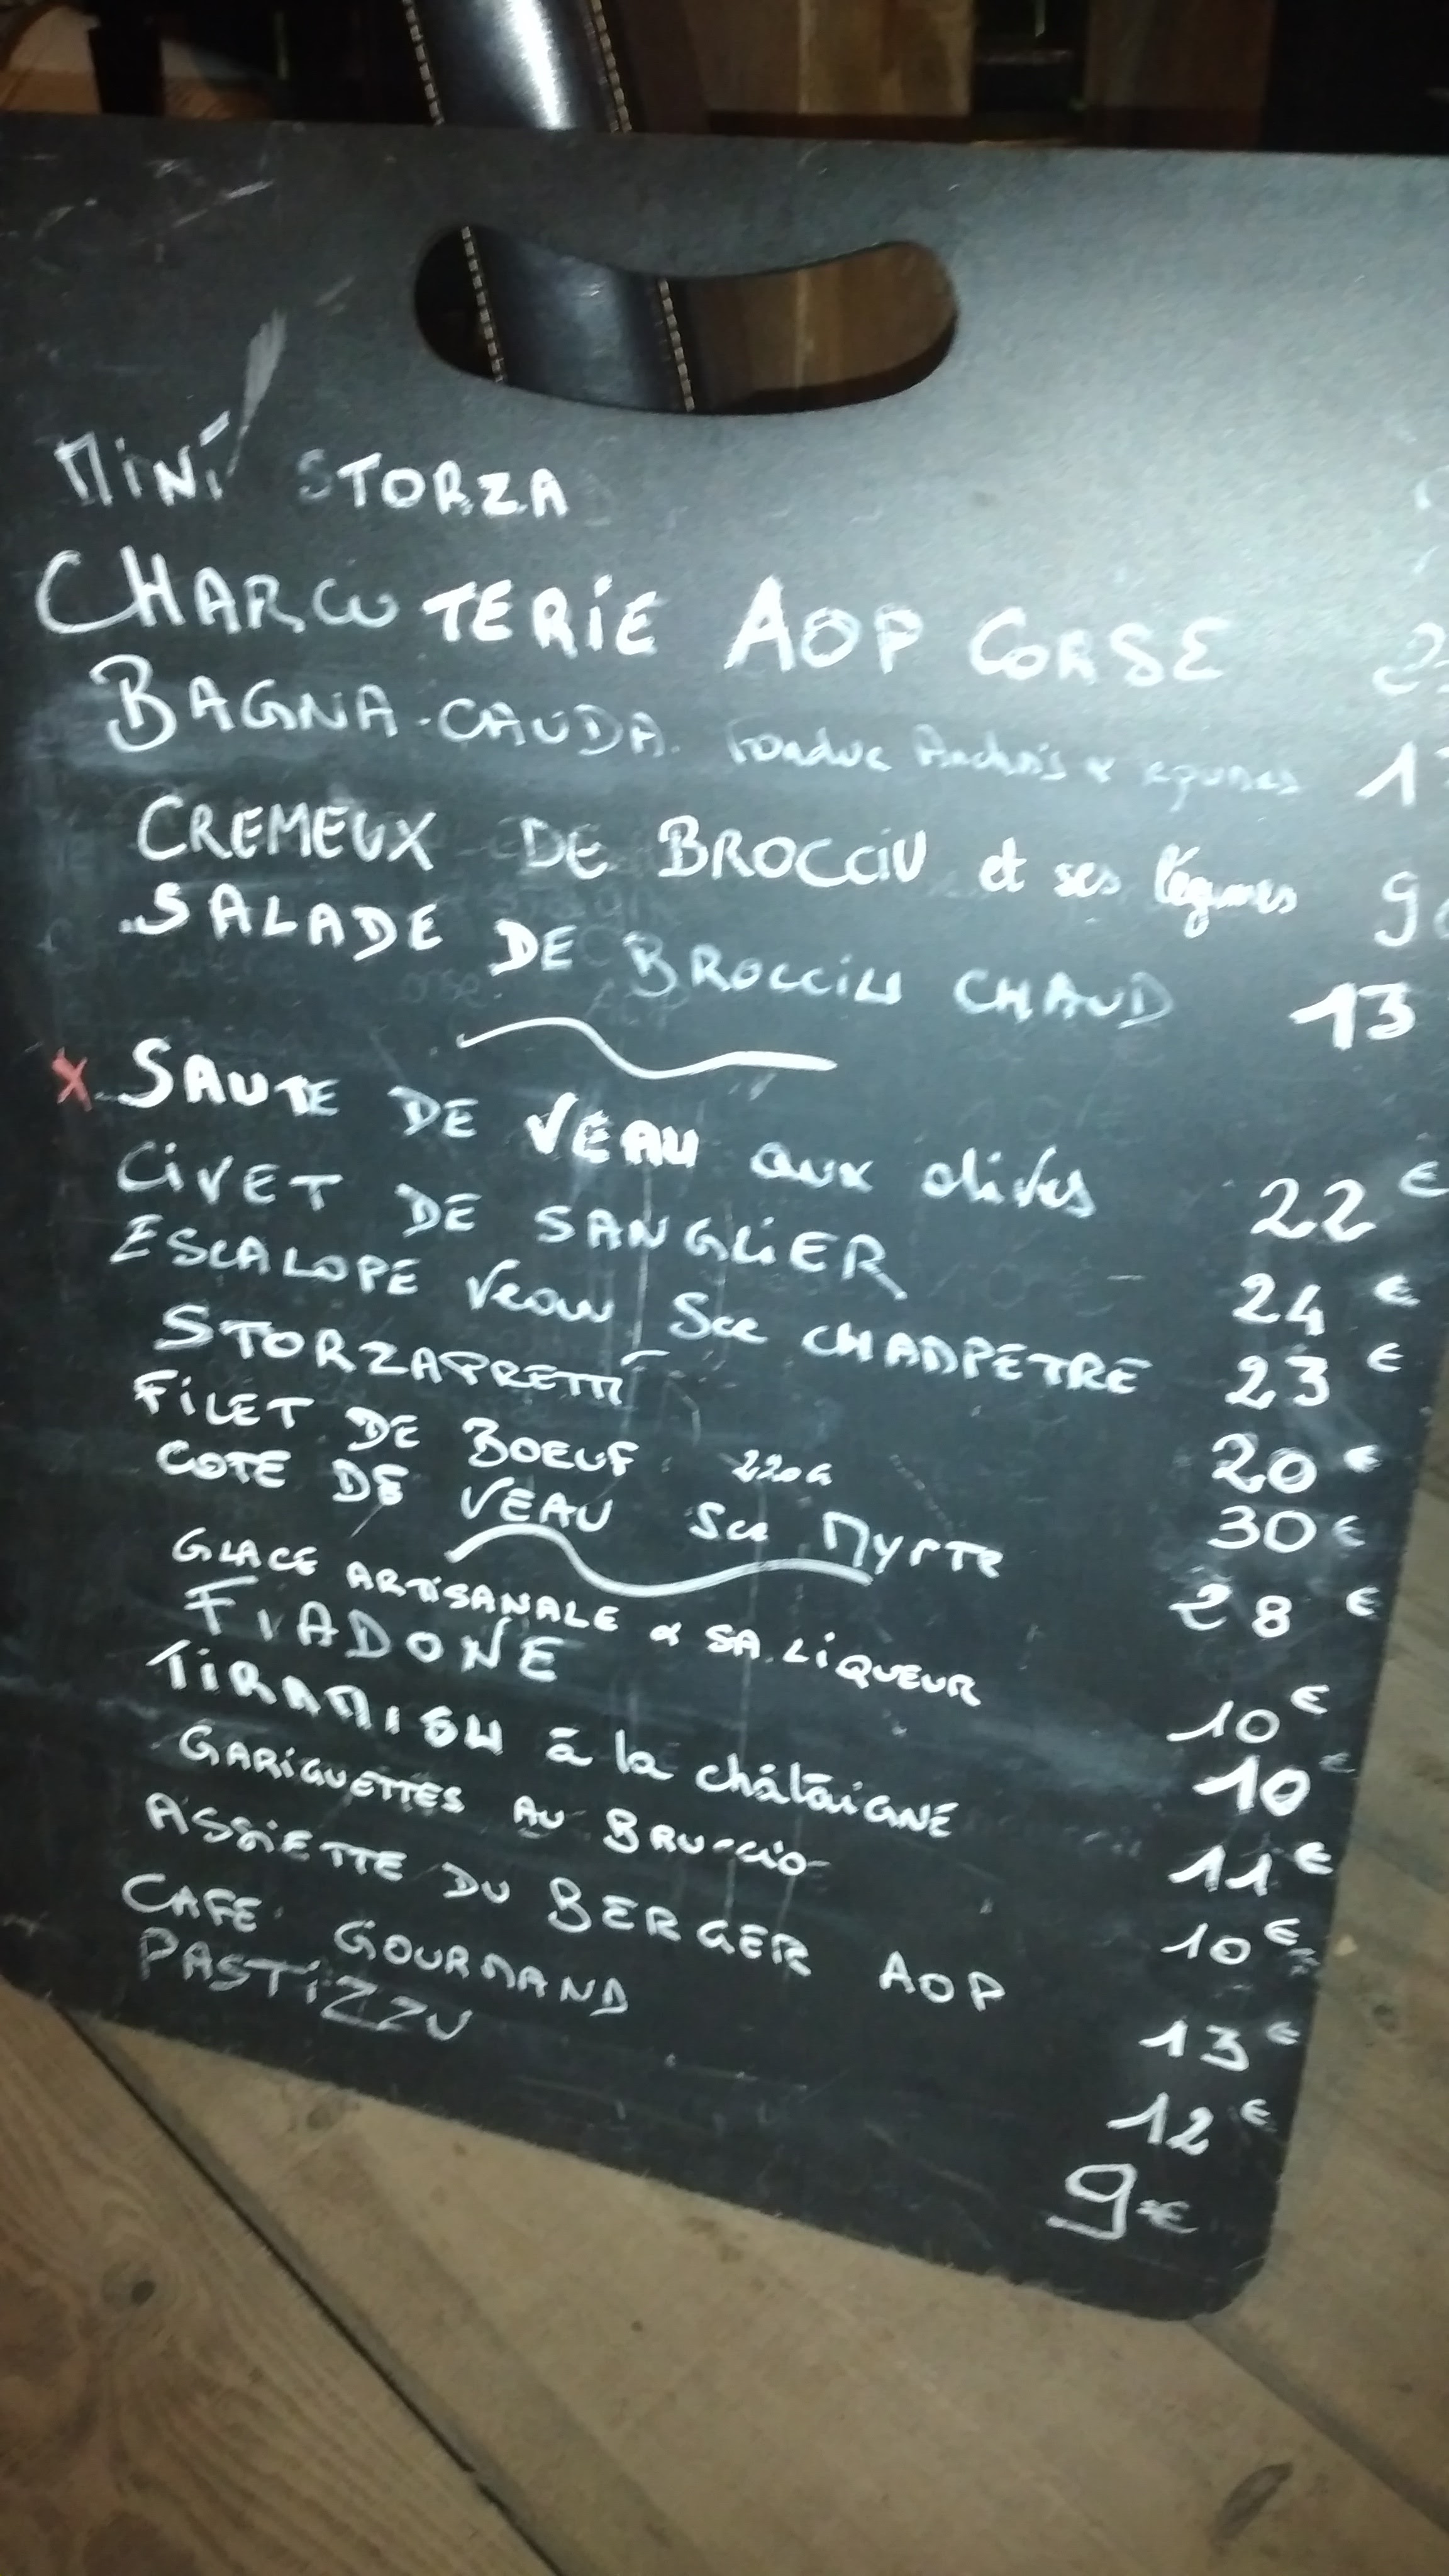 MINI STORZA
CHARCUTERIE AOP CORSE
BAGNA-CAUDA. Fondue Anchois & legumes 1
CREMEUX DE BROCCIU et ses légumes 9
SALADE DE BROCCIU CHAUD 13
x SAUTE DE VEAU aux olives 22 €
CIVET DE SANGLIER 24 €
ESCALOPE Veau Sce CHAMPETRE 23 €
STORZAPRETTI 20 €
FILET DE BOEUF 220G 30 €
COTE DE VEAU Sce MYRTE 28 €
GLACE ARTISANALE & SA LIQUEUR 10 €
FIADONE 10 €
TIRAMISU à la châtaigne 11 €
GARIGUETTES AU BRUCCIO 10 €
ASSIETTE DU BERGER AOP 13 €
CAFE GOURMAND 12 €
PASTIZZU 9 €